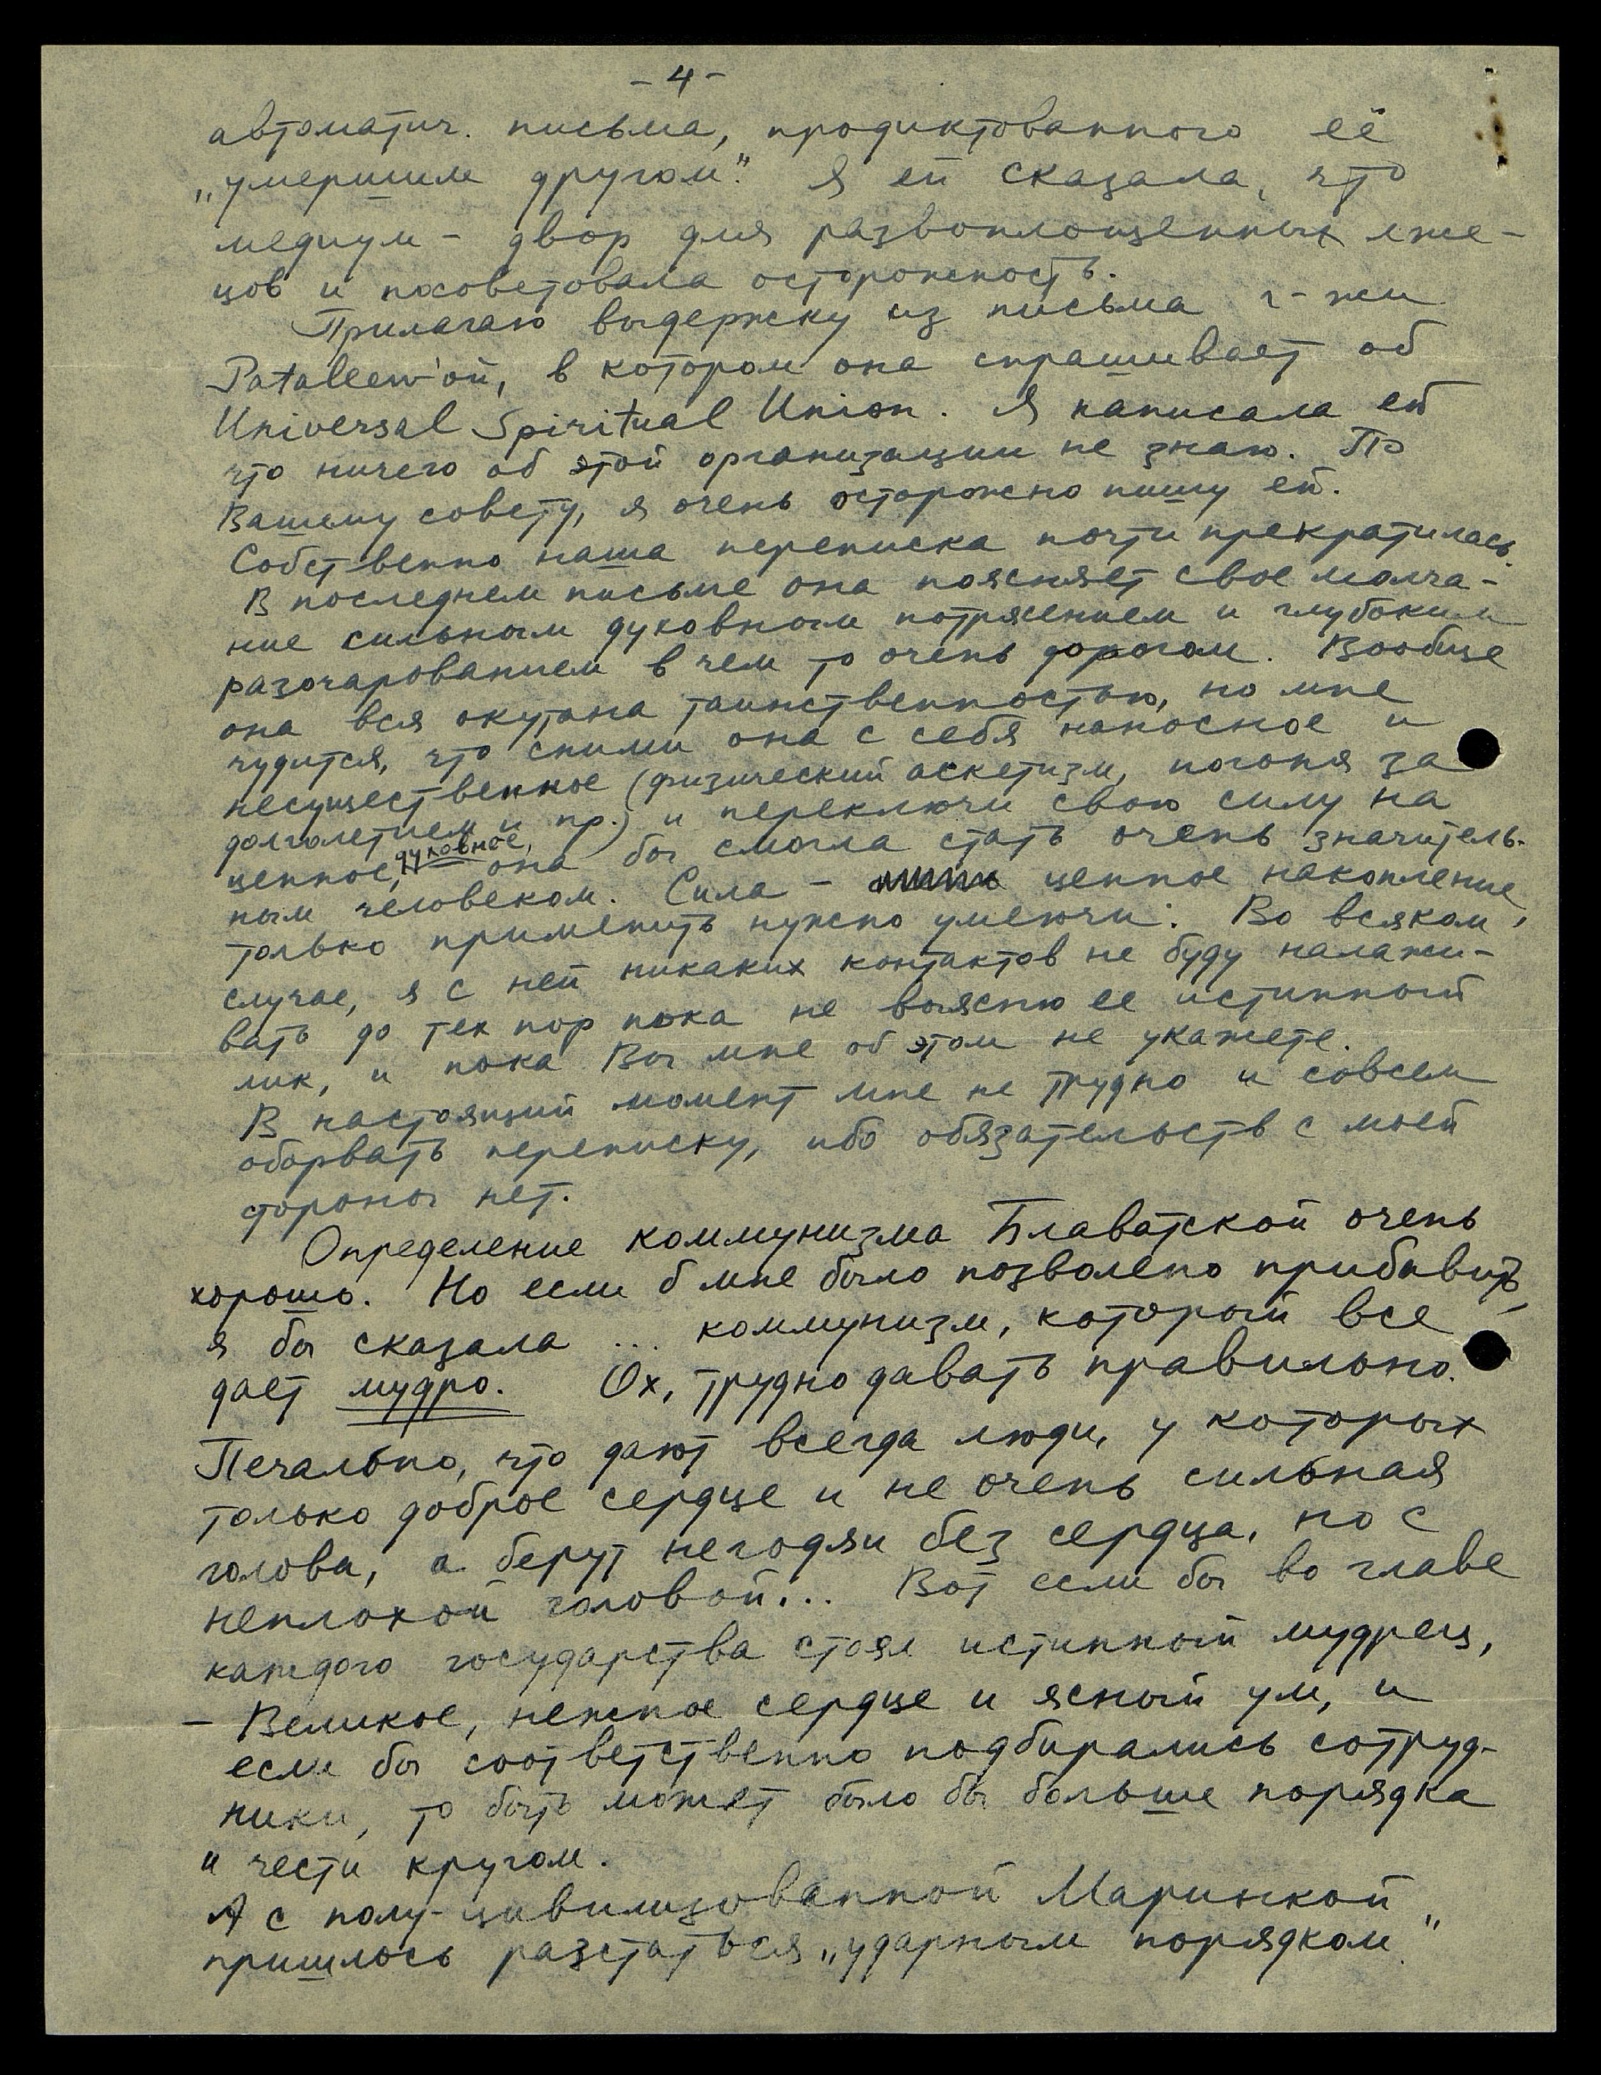 - 4 -
автоматич. письма, продиктованного её
„умершим другом." Я ей сказала, что
медиум - двор для развоплощенных лже-
цов и посоветовала осторожность.
Прилагаю выдержку из письма г-жи
Patallew'ой, в котором она спрашивает об
Universal Spiritual Union. Я написала ей
что ничего об этой организации не знаю. По
Вашему совету, я очень осторожно пишу ей.
Собственно наша переписка почти прекратилась.
В последнем письме она поясняет свое молча-
ние сильным духовным потрясением и глубоким
разочарованием в чем то очень дорогом. Вообще
она вся окутана таинственностью, но мне
чудится, что сними она с себя наносное и
несущественное (физический аскетизм, погоня за
долголетием и пр.) и переключи свою силу на
ценное, духовное, она бы смогла стать очень значитель-
ным человеком. Сила - ценное накопление,
только применить нужно умеючи. Во всяком
случае, я с ней никаких контактов не буду налажи-
вать до тех пор пока не выясню ее истинный
лик, и пока Вы мне об этом не укажете.
В настоящий момент мне не трудно и совсем
оборвать переписку, ибо обязательств с моей
стороны нет.
Определение коммунизма Блаватской очень
хорошо. Но если б мне было позволено прибавить,
я бы сказала ... коммунизм, который все
дает мудро. Ох, трудно давать правильно.
Печально, что дают всегда люди, у которых
только доброе сердце и не очень сильная
голова, а берут негодяи без сердца, но с
неплохой головой... Вот если бы во главе
каждого государства стоял истинный мудрец,
- Великое, нежное сердце и ясный ум, и
если бы соответственно подбирались сотруд-
ники, то быть может было бы больше порядка
и чести кругом.
А с полу-цивилизованной Маринкой
пришлось разстаться „ударным порядком"